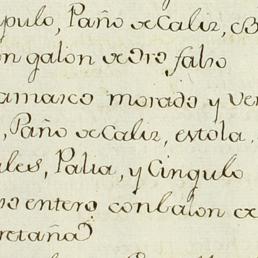 pulo, Paño de Caliz, e B
on galon de Oro falso
amasco morado y ver
, Paño de Caliz, estola,
ales, Palia, y Cingulo
entero con balon
retaña